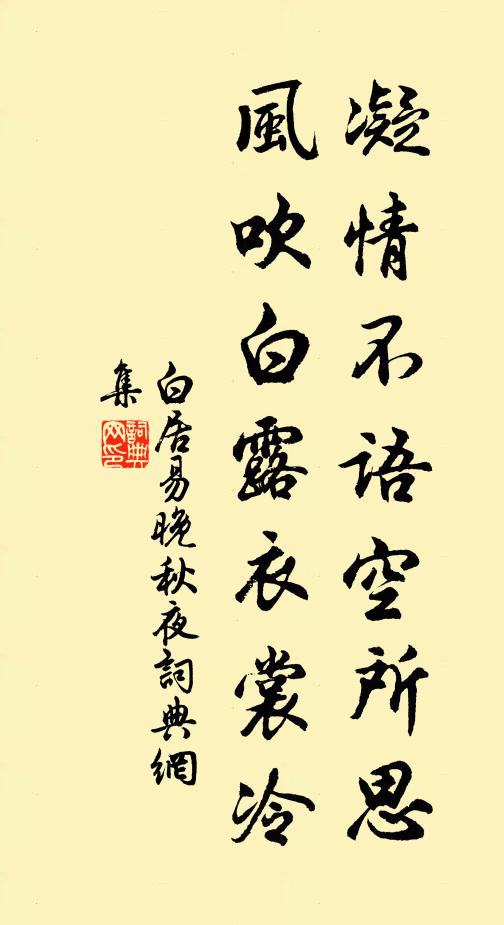 凝情不語空所思
風吹白露衣裳冷
白居易晚秋夜詞典網
集
詞典
网印